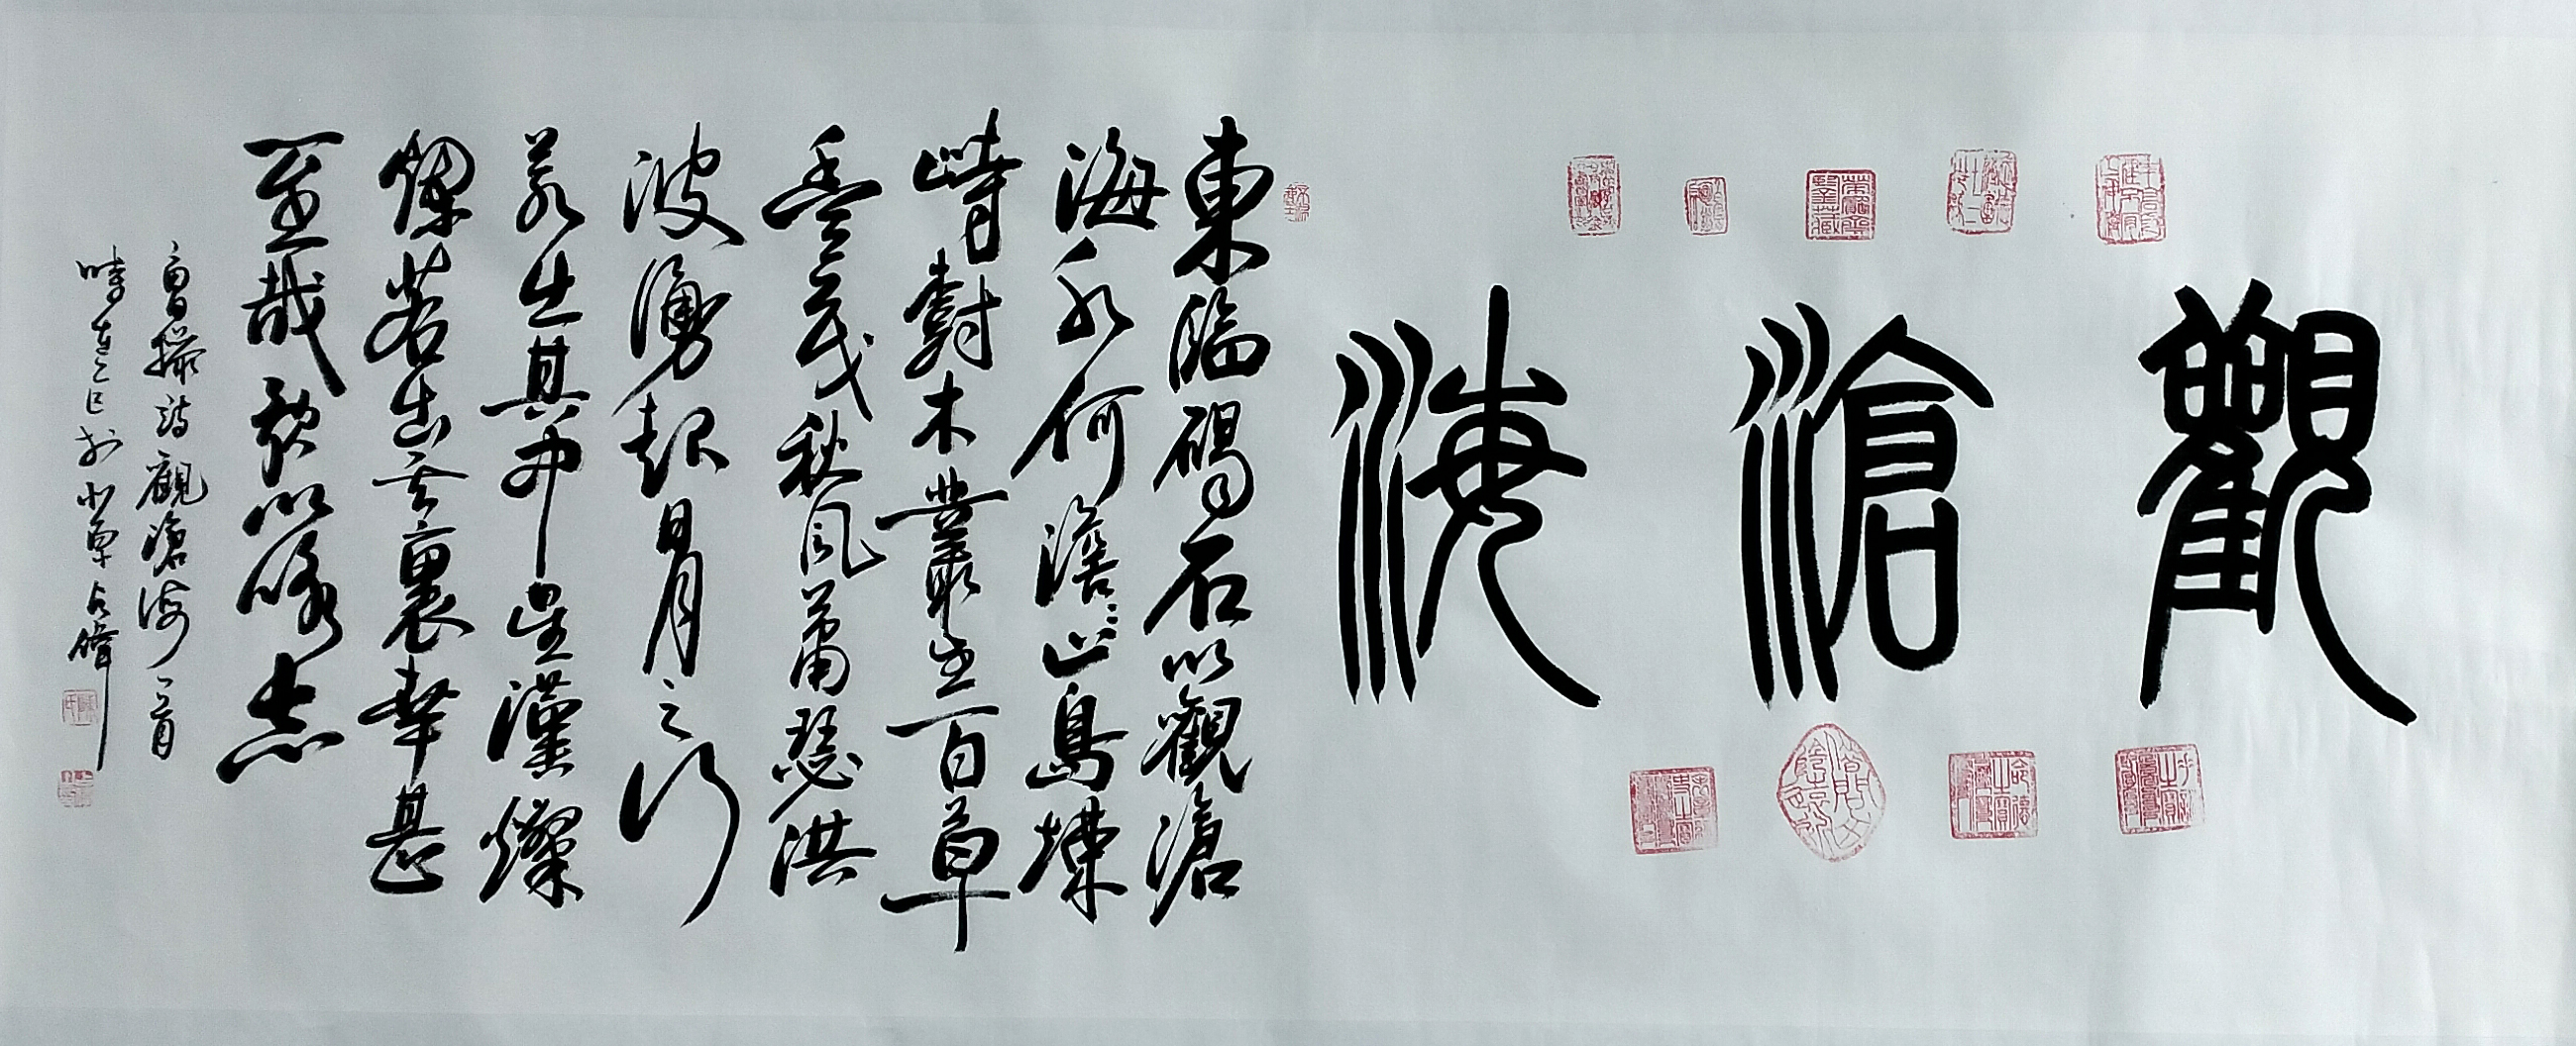 觀滄海
東臨碣石以觀滄
海水何澹〻山島竦
峙樹木叢生百草
豐茂秋風蕭瑟洪
波湧起日月之行
若出其中星漢燦
爛若出其裏幸甚
至哉歌以詠志
曹操詩觀滄海一首
時在乙巳於